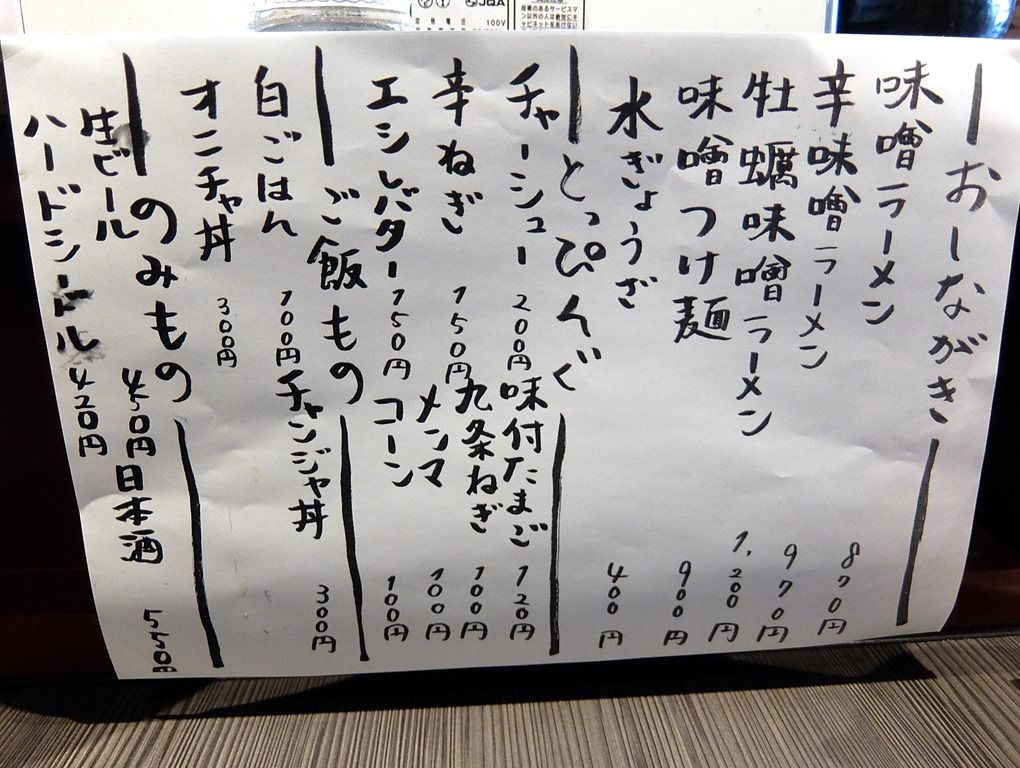 おしながき
味噌ラーメン 870円
辛味噌ラーメン 970円
牡蠣味噌ラーメン 1,200円
味噌つけ麺 900円
水ぎょうざ 400円
とっぴんぐ
チャーシュー 200円 味付たまご 120円
辛ねぎ 150円 九条ねぎ 100円
メンマ 100円
エシレバター 150円 コーン 100円
ご飯もの
白ごはん 100円 チャンジャ丼 300円
オニチャ丼 300円
のみもの
生ビール 450円 日本酒 550円
ハードシードル 420円
JQA
定格電圧 100V
技術のあるサービスマ
ン以外の人は絶対にキ
ャビネットをあけない